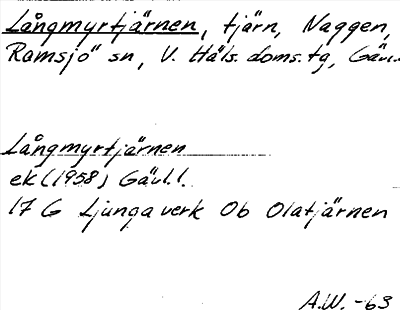 Långmyrtjärnen, tjärn, Naggen,
Ramsjö sn, V. Häls. doms.tg, Gävl.
Långmyrtjärnen
ek (1958) Gävl.l.
17 G Ljungaverk Ob Olatjärnen
A.W. -63